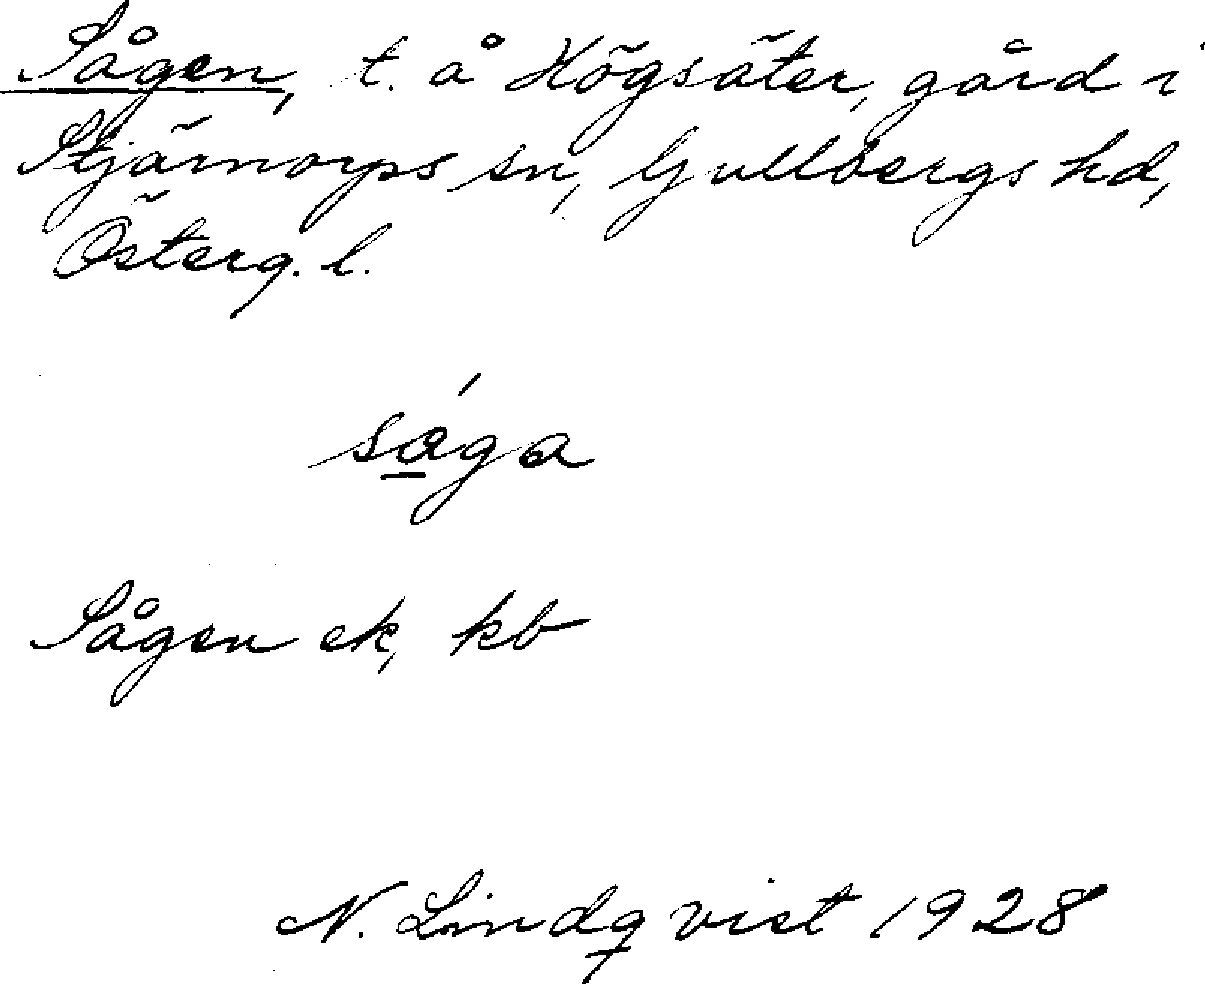 Sågen, t. å Högsäter, gård i
Stjärnorps sn, Gullbergs hd,
Österg. l.
såga
Sågen ek, kb
N. Lindqvist 1928